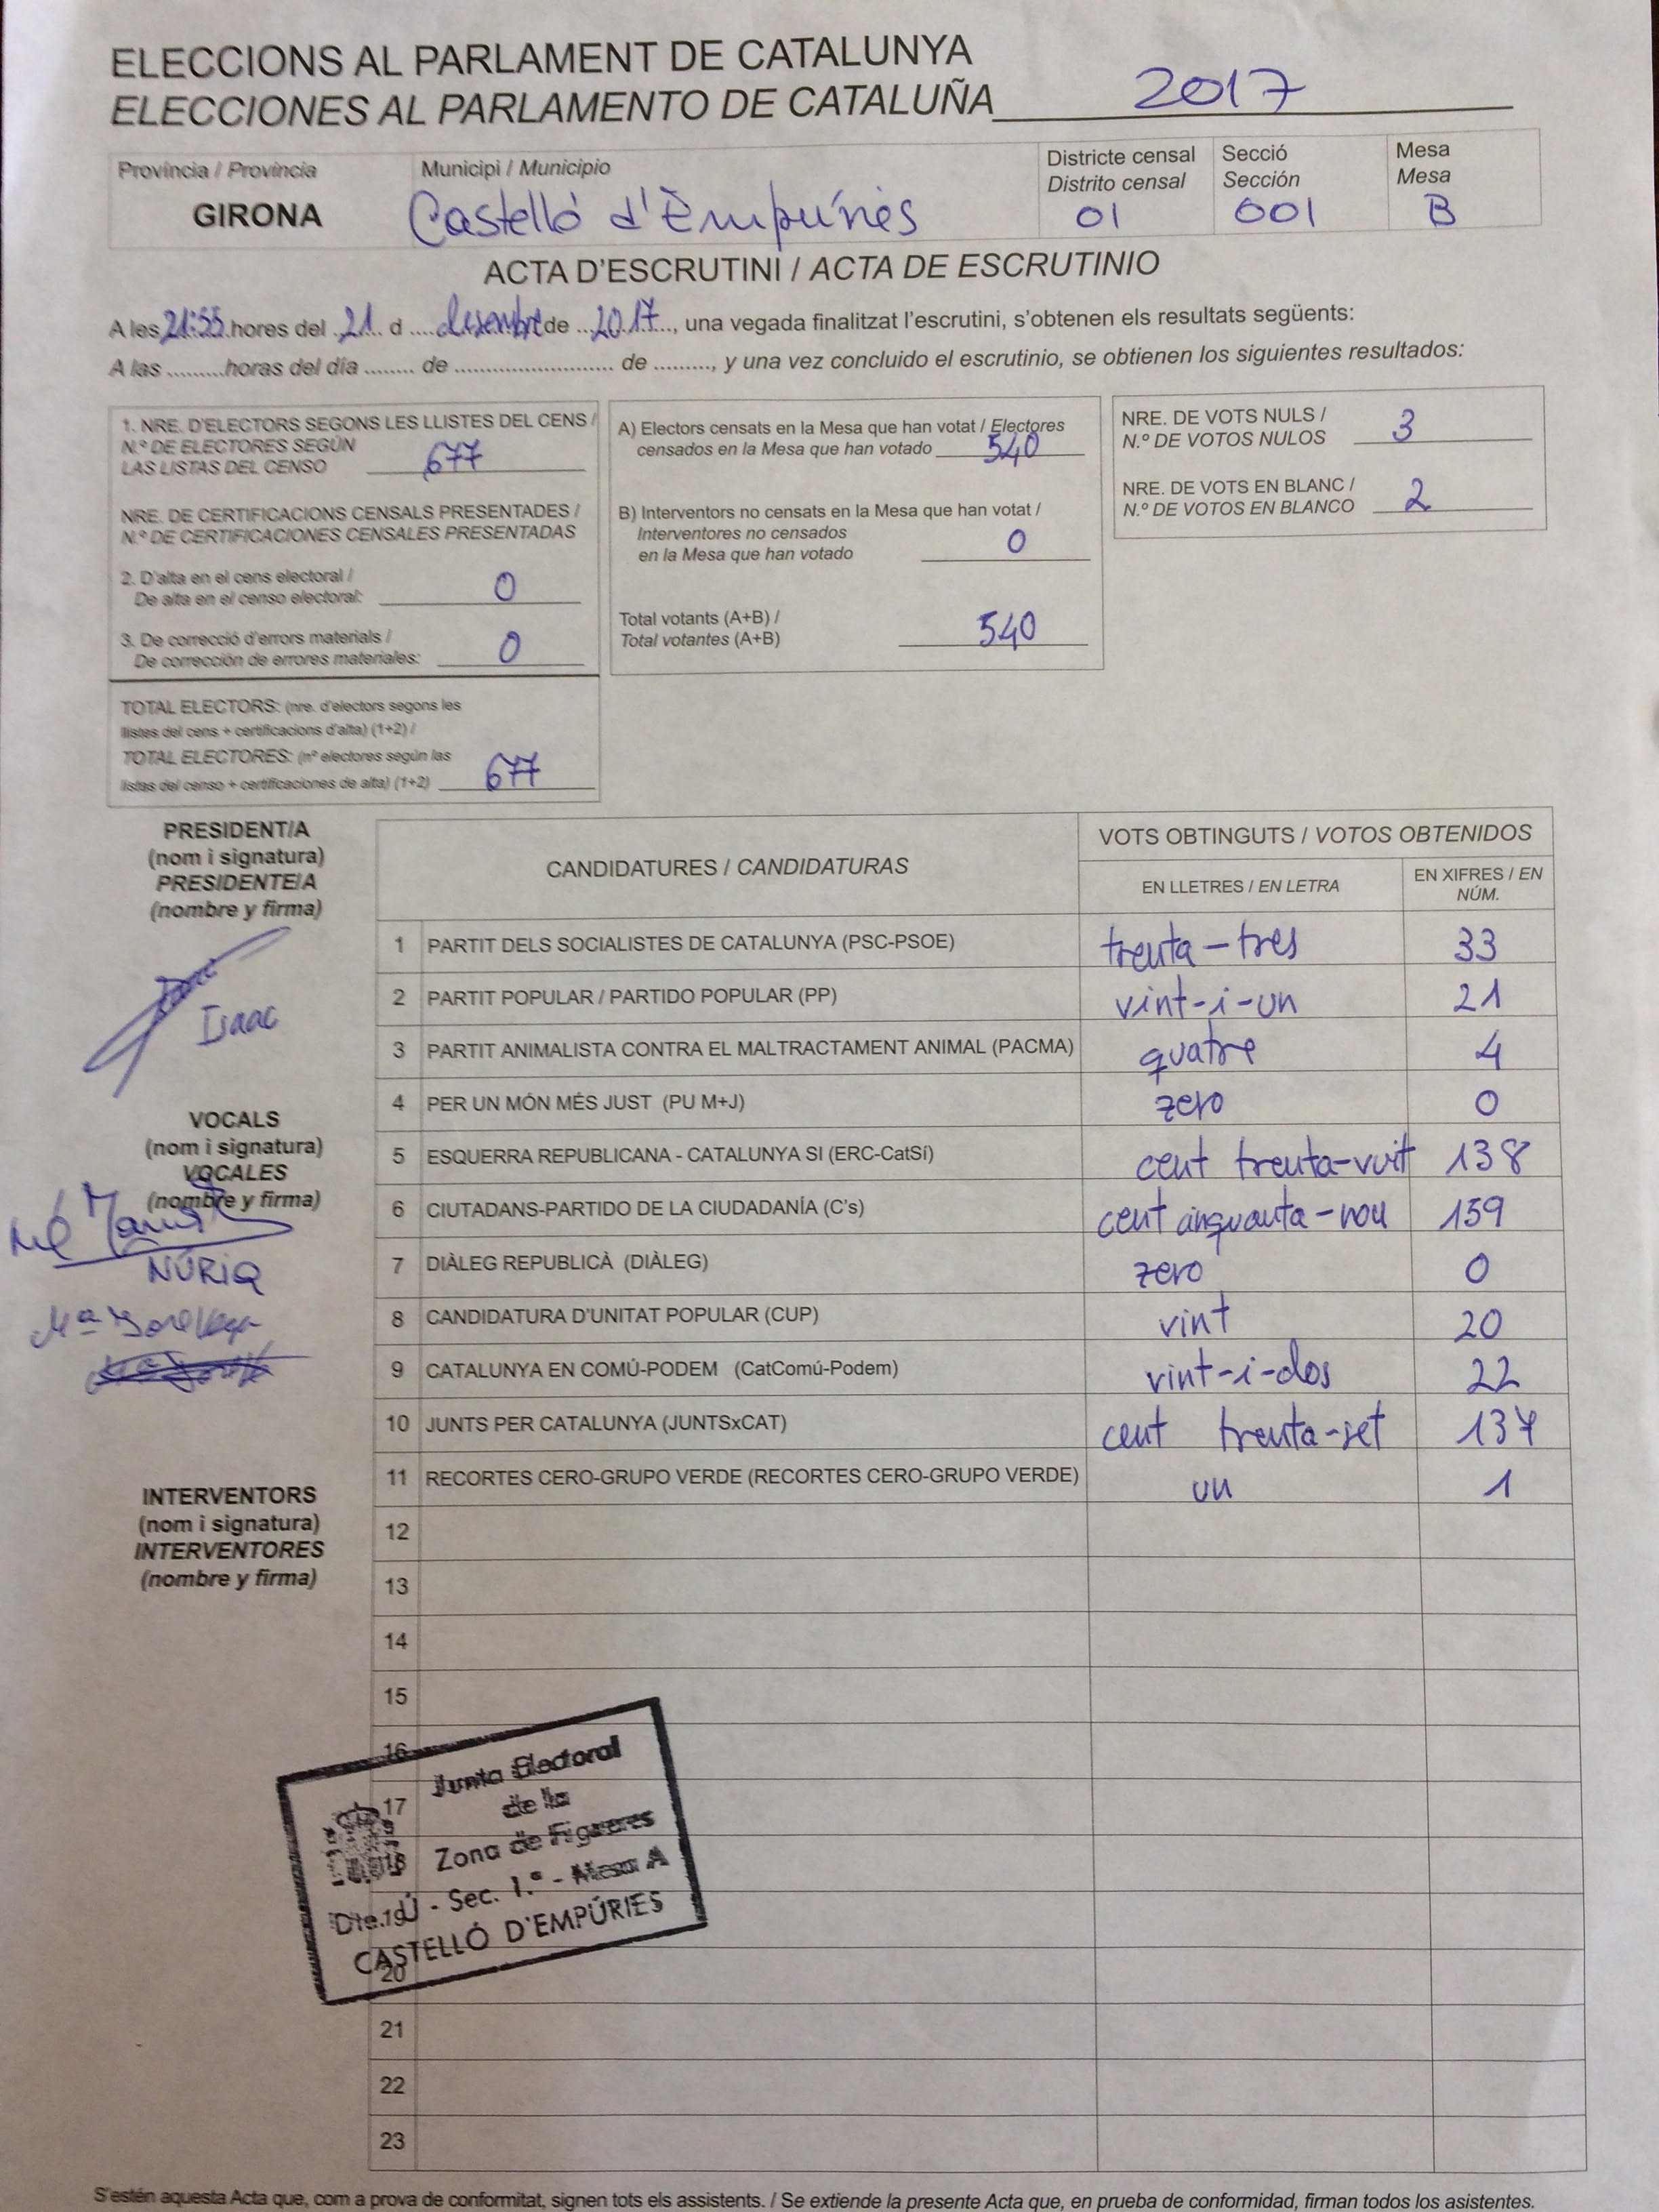 ELECCIONS AL PARLAMENT DE CATALUNYA
ELECCIONES AL PARLAMENTO DE CATALUÑA 2017
Província / Provincia
GIRONA
Municipi / Municipio
Castelló d'Èmpúries
Districte censal
Distrito censal
01
Secció
Sección
001
Mesa
Mesa
B
ACTA D'ESCRUTINI / ACTA DE ESCRUTINIO
A les 21:55 hores del 21 d desembre de 2017, una vegada finalitzat l'escrutini, s'obtenen els resultats següents:
A las .........horas del día ........ de .......................... de ........., y una vez concluido el escrutinio, se obtienen los siguientes resultados:
1. NRE. D'ELECTORS SEGONS LES LLISTES DEL CENS /
N.º DE ELECTORES SEGÚN
LAS LISTAS DEL CENSO 677
NRE. DE CERTIFICACIONS CENSALS PRESENTADES /
N.º DE CERTIFICACIONES CENSALES PRESENTADAS
2. D'alta en el cens electoral /
De alta en el censo electoral: 0
3. De correcció d'errors materials /
De corrección de errores materiales: 0
TOTAL ELECTORS: (nre. d'electors segons les
llistes del cens + certificacions d'alta) (1+2) /
TOTAL ELECTORES: (nº electores según las
listas del censo + certificaciones de alta) (1+2) 677
A) Electors censats en la Mesa que han votat / Electores
censados en la Mesa que han votado 540
B) Interventors no censats en la Mesa que han votat /
Interventores no censados
en la Mesa que han votado 0
Total votants (A+B) /
Total votantes (A+B) 540
NRE. DE VOTS NULS /
N.º DE VOTOS NULOS 3
NRE. DE VOTS EN BLANC /
N.º DE VOTOS EN BLANCO 2
PRESIDENT/A
(nom i signatura)
PRESIDENTE/A
(nombre y firma)
Isaac
VOCALS
(nom i signatura)
VOCALES
(nombre y firma)
NÚRIA
INTERVENTORS
(nom i signatura)
INTERVENTORES
(nombre y firma)
CANDIDATURES / CANDIDATURAS
VOTS OBTINGUTS / VOTOS OBTENIDOS
EN LLETRES / EN LETRA
EN XIFRES / EN
NÚM.
1 PARTIT DELS SOCIALISTES DE CATALUNYA (PSC-PSOE) trenta-tres 33
2 PARTIT POPULAR / PARTIDO POPULAR (PP) vint-i-un 21
3 PARTIT ANIMALISTA CONTRA EL MALTRACTAMENT ANIMAL (PACMA) quatre 4
4 PER UN MÓN MÉS JUST (PU M+J) zero 0
5 ESQUERRA REPUBLICANA - CATALUNYA SI (ERC-CatSí) cent trenta-vuit 138
6 CIUTADANS-PARTIDO DE LA CIUDADANÍA (C's) cent cinquanta-nou 159
7 DIÀLEG REPUBLICÀ (DIÀLEG) zero 0
8 CANDIDATURA D'UNITAT POPULAR (CUP) vint 20
9 CATALUNYA EN COMÚ-PODEM (CatComú-Podem) vint-i-dos 22
10 JUNTS PER CATALUNYA (JUNTSxCAT) cent trenta-set 137
11 RECORTES CERO-GRUPO VERDE (RECORTES CERO-GRUPO VERDE) un 1
12
13
14
15
16
17
18
19
20
21
22
23
Junta Electoral
de la
Zona de Figueres
Dte. Ú - Sec. 1.ª - Mesa A
CASTELLÓ D'EMPÚRIES
S'estén aquesta Acta que, com a prova de conformitat, signen tots els assistents. / Se extiende la presente Acta que, en prueba de conformidad, firman todos los asistentes.